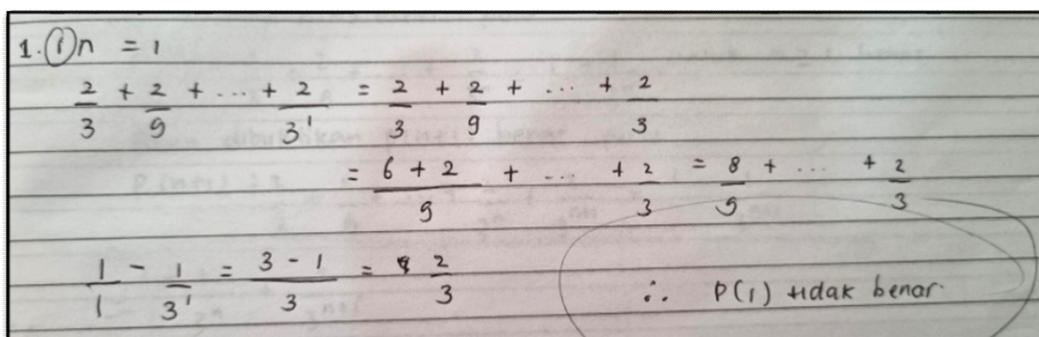 1. (i) n = 1
2/3 + 2/9 + ... + 2/3¹ = 2/3 + 2/9 + ... + 2/3
= (6 + 2)/9 + ... + 2/3 = 8/9 + ... + 2/3
1/1 - 1/3¹ = (3 - 1)/3 = 2/3
∴ P(1) tidak benar.